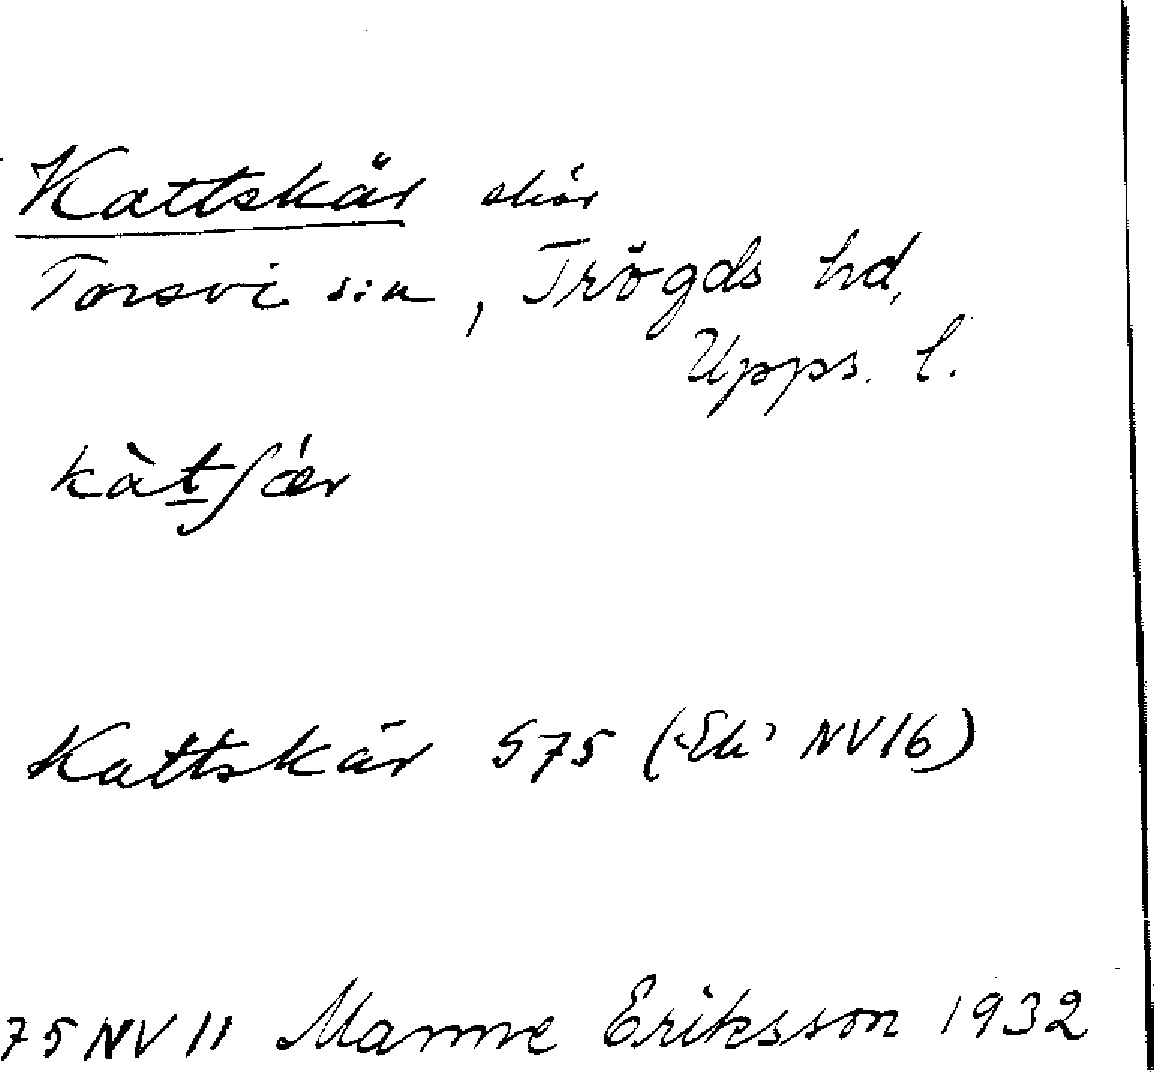 Kattskär skär
Torsvi sn, Trögds hd,
Upps. l.
kàt̲ʃǽr
Kattskär S75 (Ek: NV16)
75 NV 11 Manne Eriksson 1932